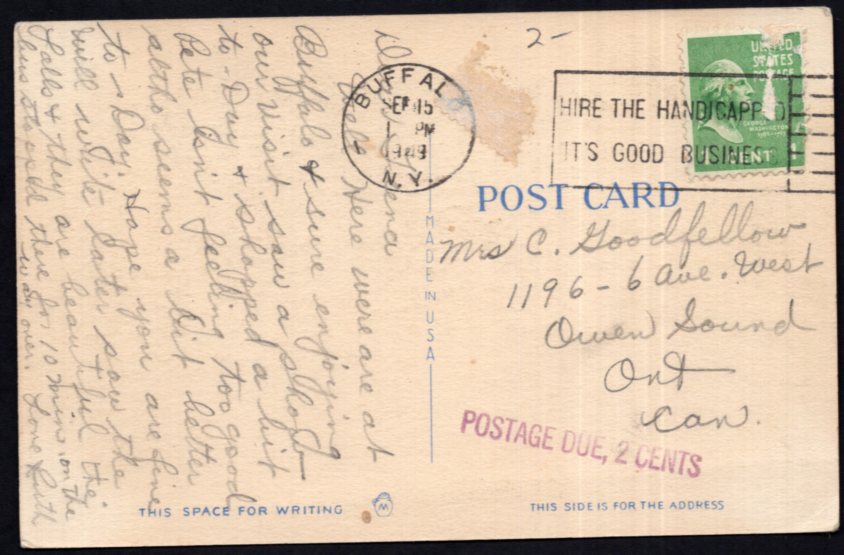 2-
BUFFALO
SEP 15
1 PM
1949
N.Y.
HIRE THE HANDICAPPED
IT'S GOOD BUSINESS
UNITED
STATES
POSTAGE
GEORGE
WASHINGTON
1¢
POST CARD
Mrs C. Goodfellow
1196-6 Ave. West
Owen Sound
Ont
Can.
POSTAGE DUE, 2 CENTS
MADE IN USA
Well Here were are at
Buffalo & sure enjoying
our visit saw a show
to-Day & shopped a bit
Pete isn't feeling too good
altho seems a bit better
to-Day. Hope you are fine
will write later saw the
Falls & they are beautiful the
bus stopped there for 10 mins. on the
way over. Love Ruth
THIS SPACE FOR WRITING
W
THIS SIDE IS FOR THE ADDRESS